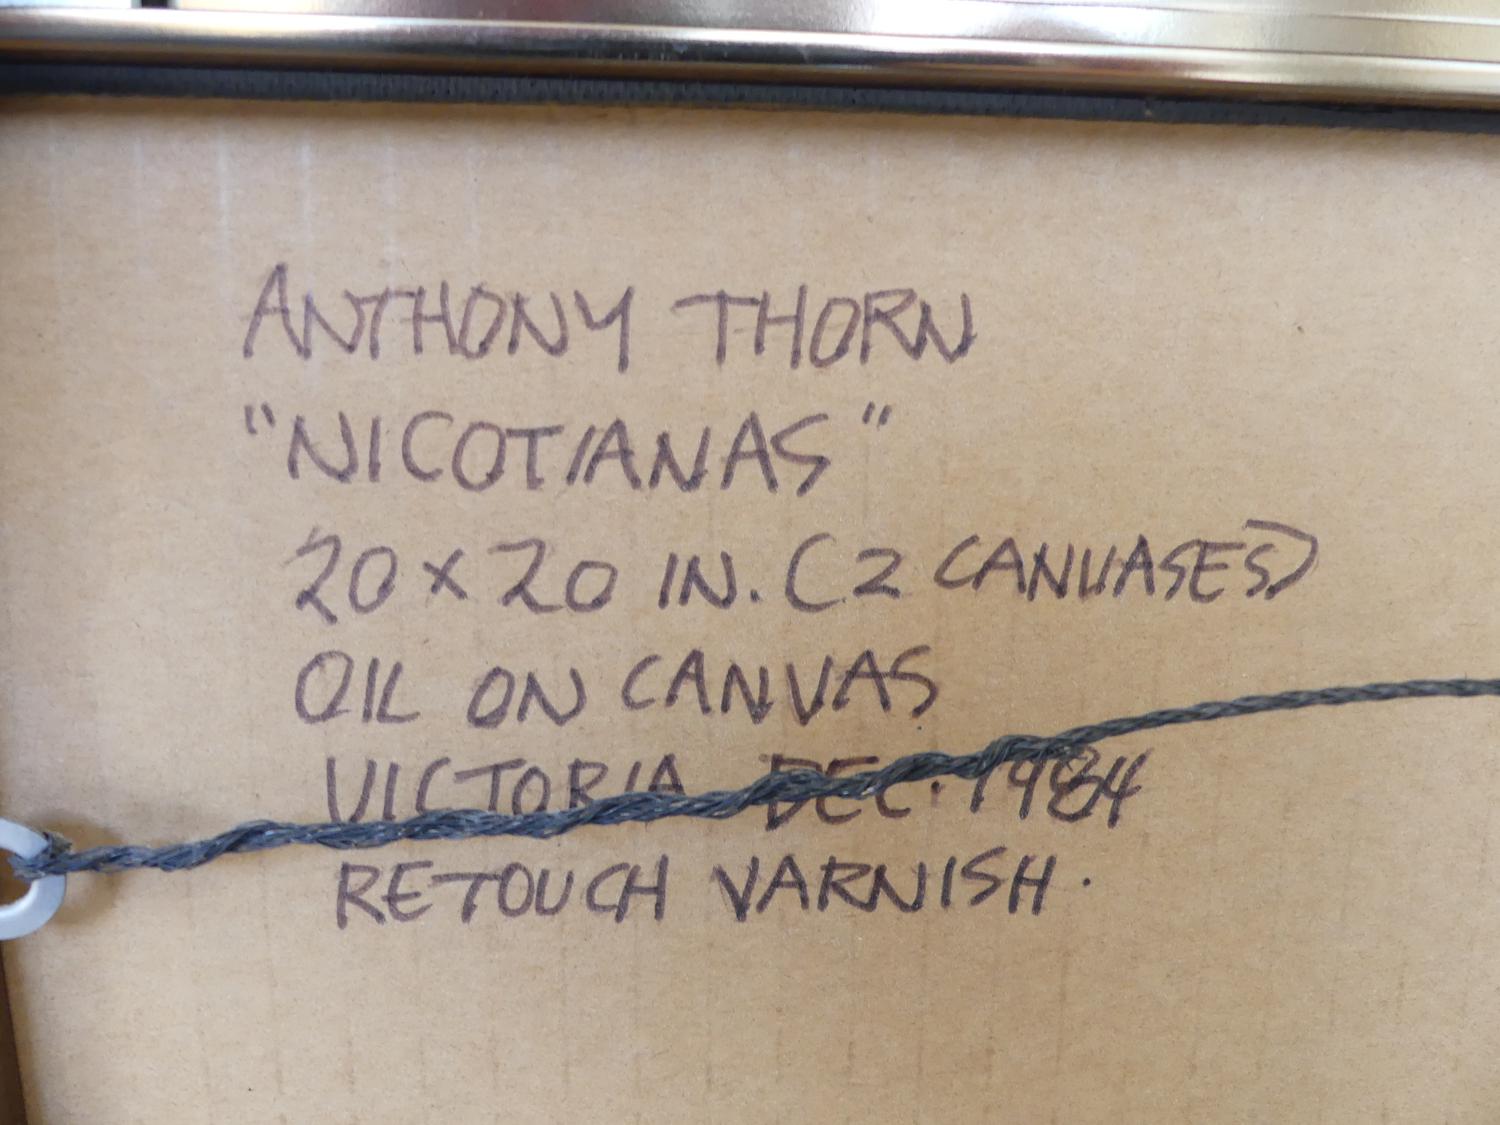 ANTHONY THORN
"NICOTIANAS"
20 x 20 IN. (2 CANVASES)
OIL ON CANVAS
VICTORIA DEC. 1984
RETOUCH VARNISH.